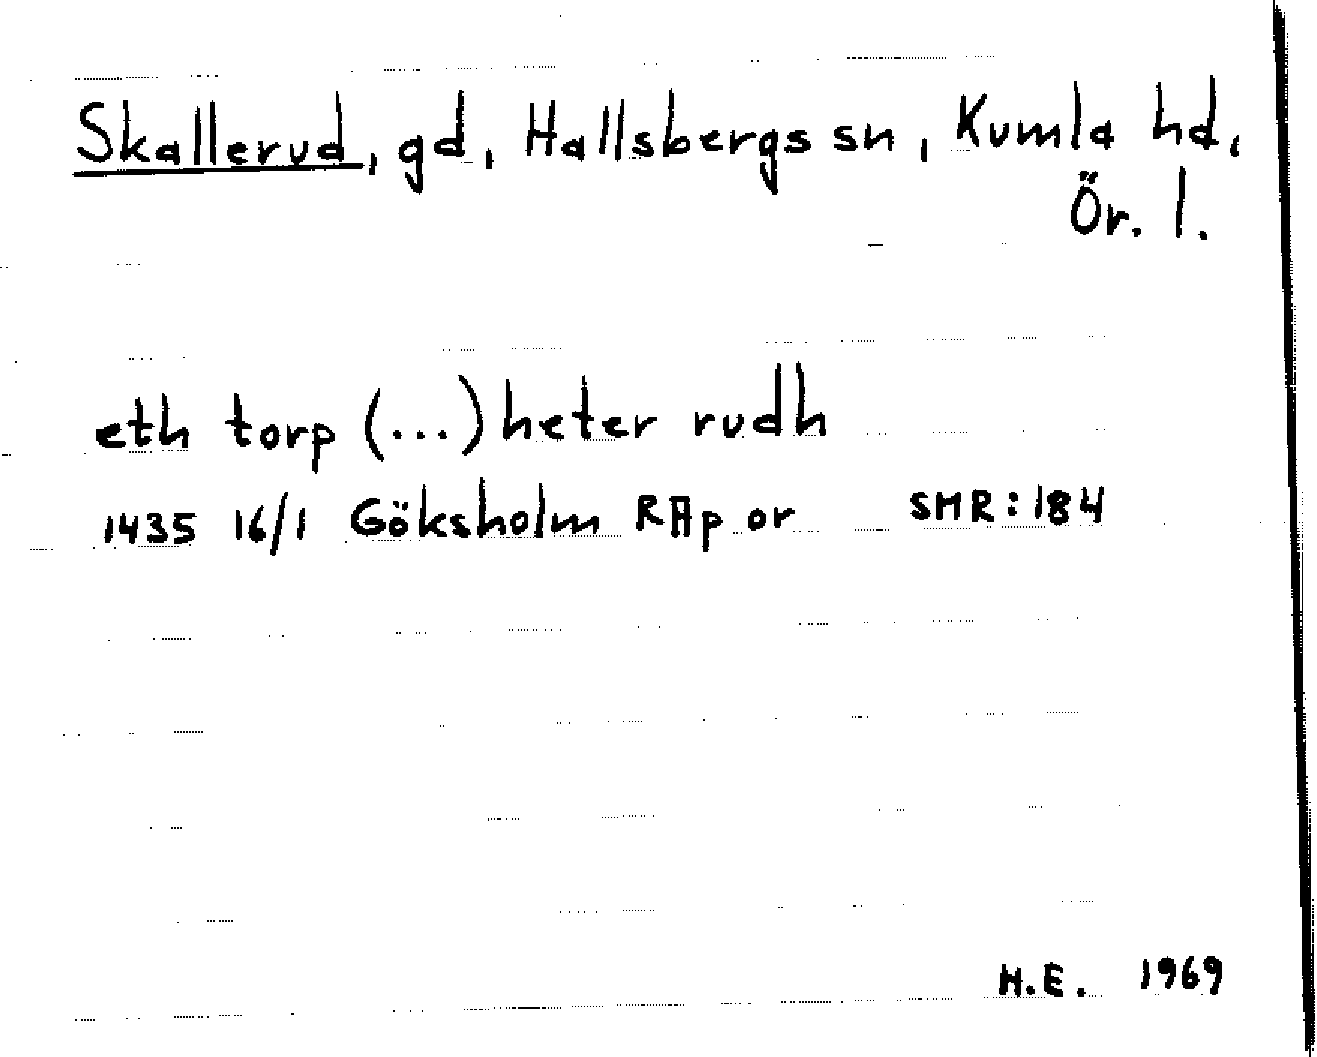 Skallerud, gd, Hallsbergs sn, Kumla hd,
Ör. l.
eth torp (...) heter rudh
1435 16/1 Göksholm RAp or SMR:184
H.E. 1969